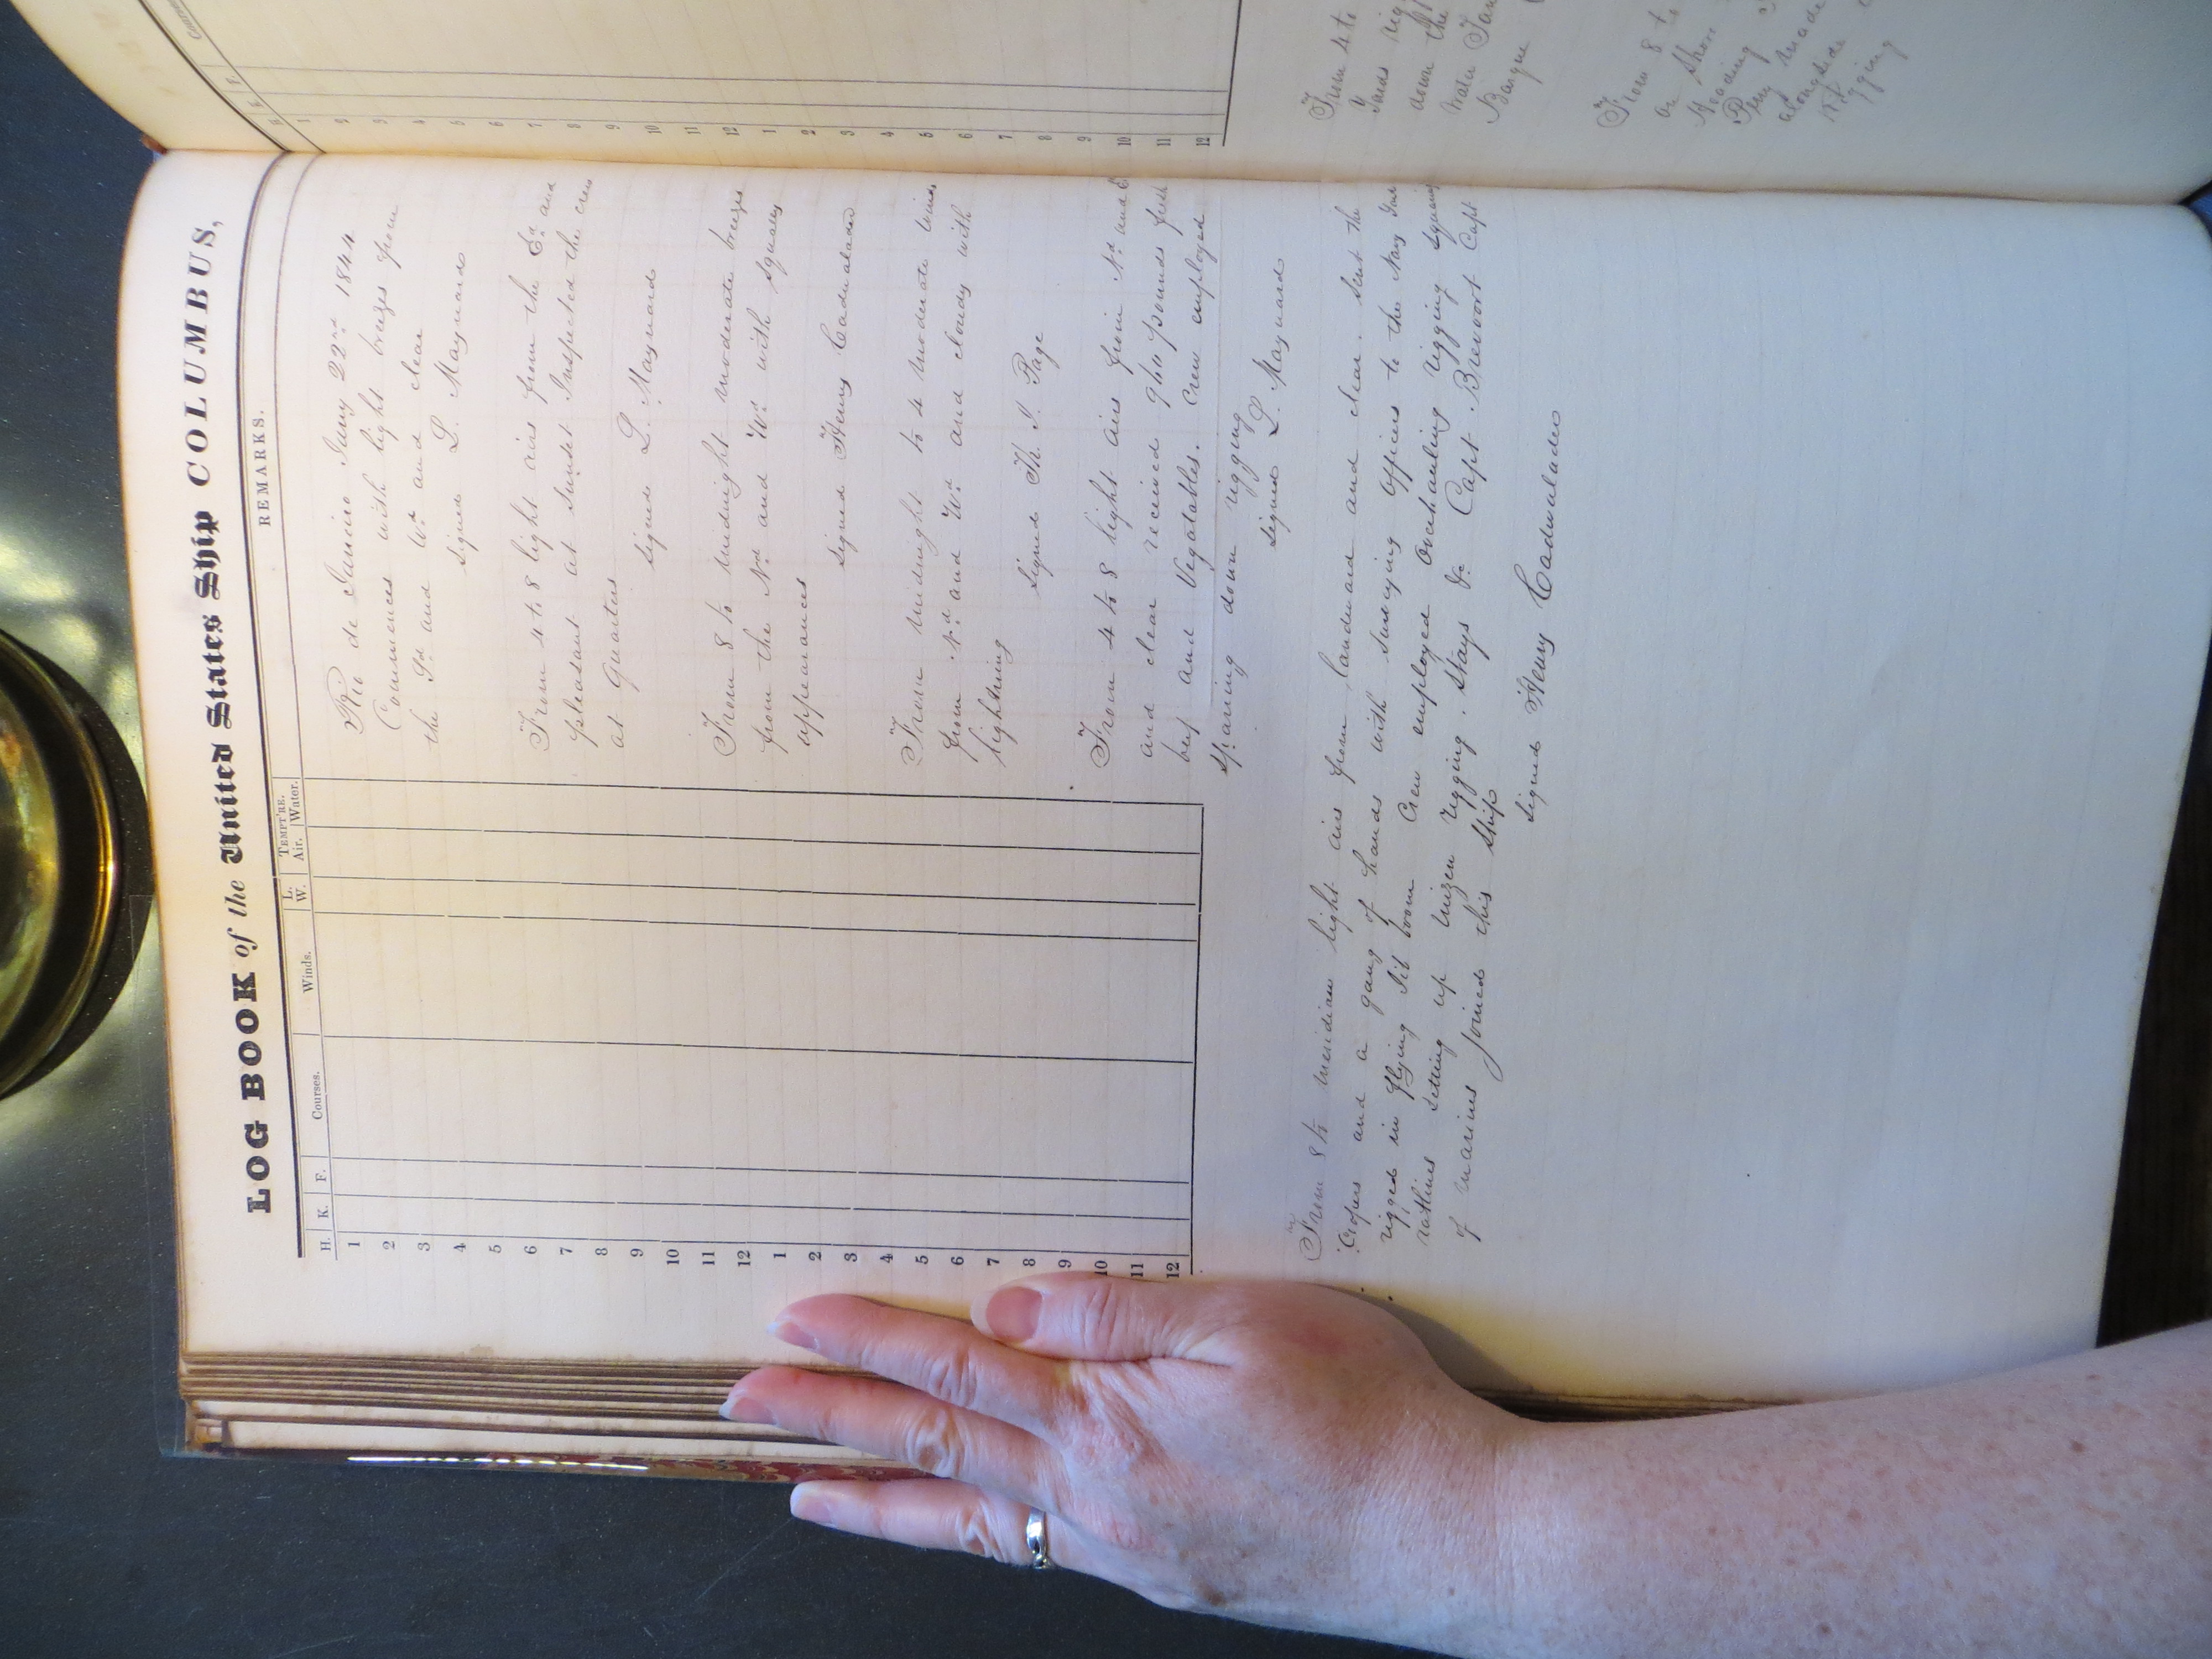 LOG BOOK of the United States Ship COLUMBUS,
H. K. F. Courses. Winds. L. W. TEMPT'RE. Air. Water. REMARKS.
1
2
3
4
5
6
7
8
9
10
11
12
1
2
3
4
5
6
7
8
9
10
11
12
Rio de Janeiro Jany 22nd 1844
Commences with light breezes from
the Sd and Wd and clear
signed L. Maynard
From 4 to 8 light airs from the Ed and
pleasant at Sunset Inspected the crew
at Quarters
signed L. Maynard
From 8 to midnight moderate breezes
from the Nd and Wd with squally
appearances
signed Henry Cadwalader
From midnight to 4 moderate winds
from Nd and Wd and cloudy with
lightning
signed Th. J. Page
From 4 to 8 light airs from Nd and E
and clear received 960 pounds fresh
beef and Vegatables. Crew employed
sparing down rigging
signed L. Maynard
From 8 to meridian light airs from landward and clear. Sent the
Coopers and a gang of hands with surveying officers to the Navy
rigged in flying Jib boom Crew employed overhauling rigging squaring
ratlins setting up mizen rigging. Stays &c Capt. Brevoort Capt
of marines joined this ship
signed Henry Cadwalader
H. F. Courses
1
2
3
4
5
6
7
8
9
10
11
12
1
2
3
4
5
6
7
8
9
10
11
12
From 4 to
Yards
down the
Water
Barque
From 8 to
on shore
Heading
Perry made
alongside
rigging